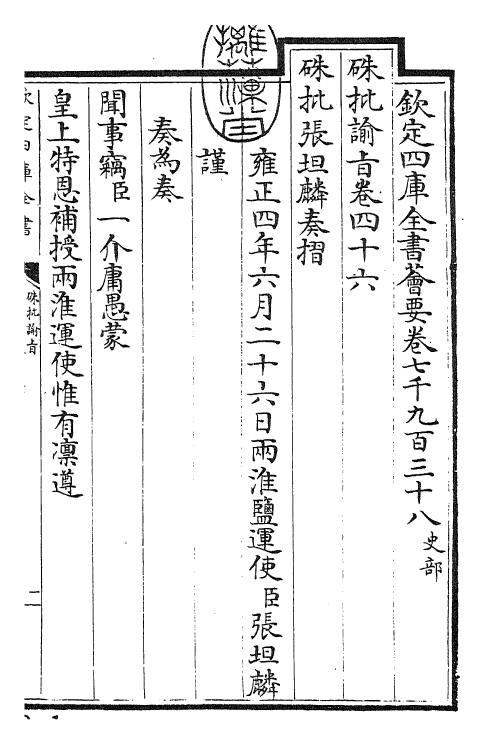 欽定四庫全書薈要卷七千九百三十八 史部
硃批諭旨卷四十六
硃批張坦麟奏摺
雍正四年六月二十六日兩淮鹽運使臣張坦麟
謹
奏為奏
聞事竊臣一介庸愚蒙
皇上特恩補授兩淮運使惟有凛遵
欽定四庫全書
硃批諭旨
二